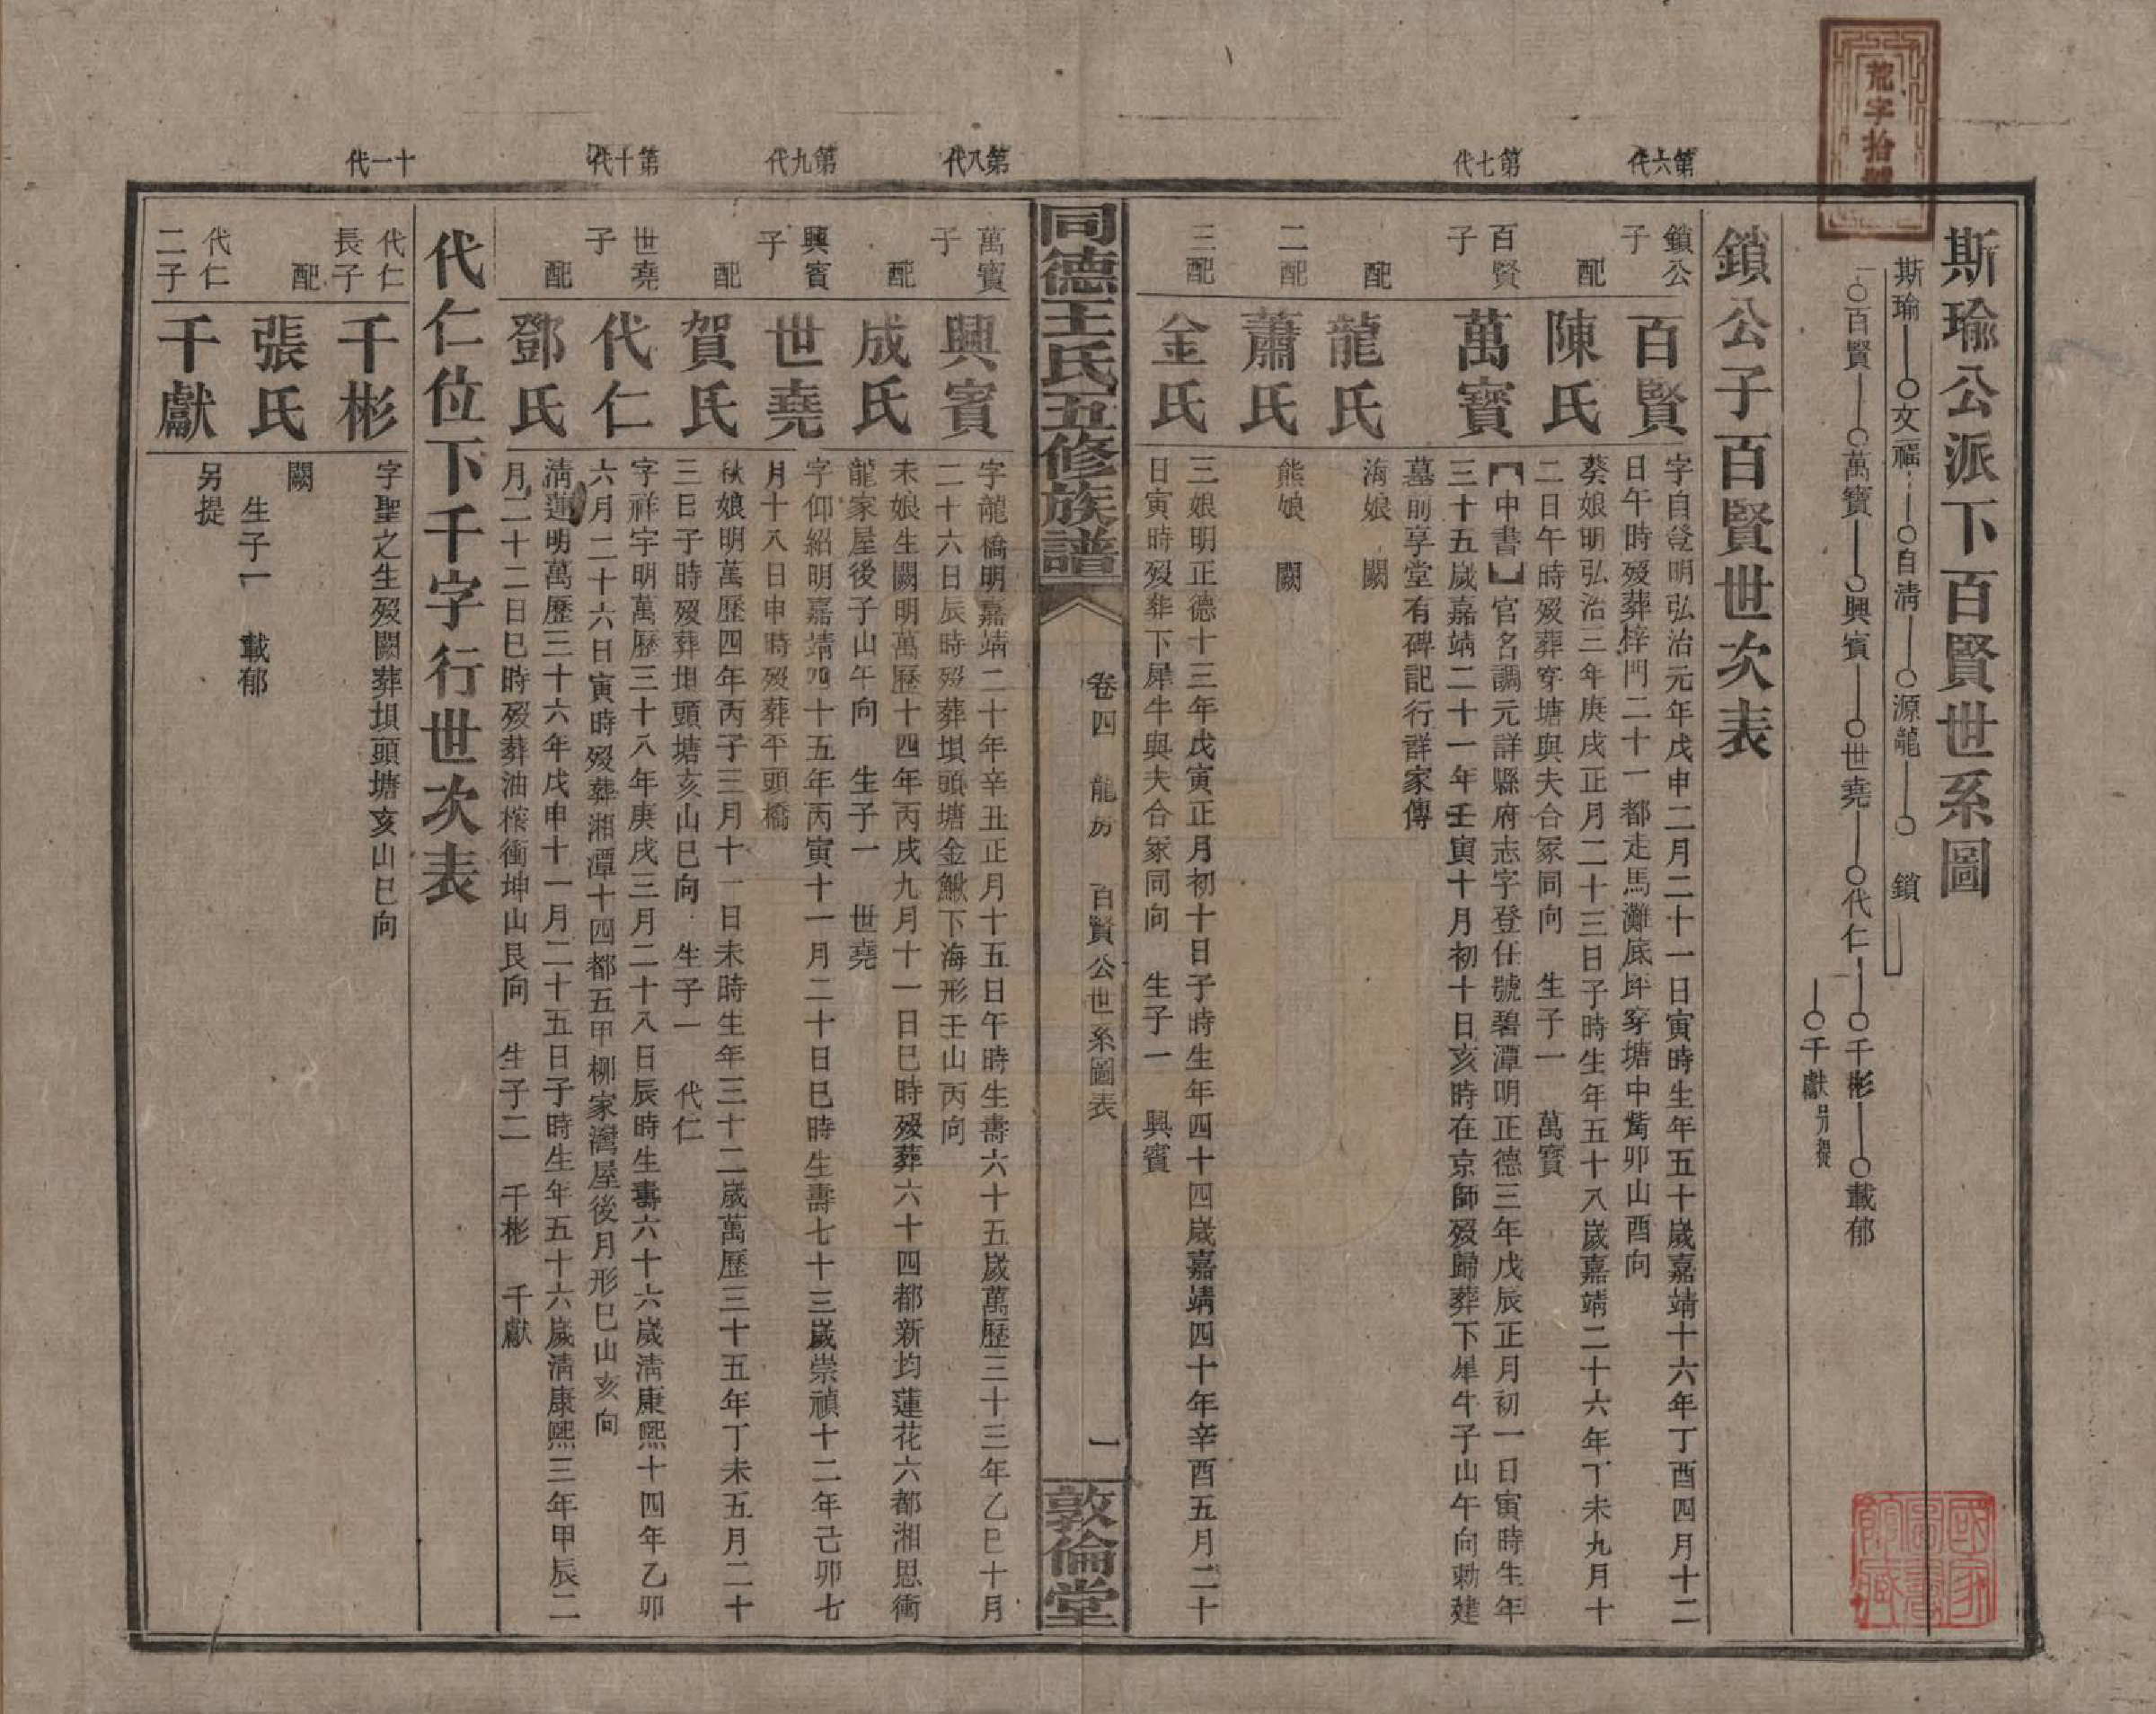 龍字拾號
斯瑜公派下百賢世系圖
斯瑜 文福 自清 源龍 鎖
百賢 萬寶 興賓 世堯 代仁 千彬 載郁
千獻 另提
鎖公子百賢世次表
第六代
鎖公子
百賢
字自登明弘治元年戊申二月二十一日寅時生年五十歲嘉靖十六年丁酉四月十二
日午時歿葬梓門二十一都走馬灘底坪穿塘中嘴卯山酉向
配
陳氏
葵娘明弘治三年庚戌正月二十三日子時生年五十八歲嘉靖二十六年丁未九月十
二日午時歿葬穿塘與夫合冢同向 生子一 萬寶
第七代
百賢子
萬寶
【中書】官名調元詳縣府志字登任號碧潭明正德三年戊辰正月初一日寅時生年
三十五歲嘉靖二十一年壬寅十月初十日亥時在京師歿歸葬下犀牛子山午向勅建
墓前享堂有碑記行詳家傳
配
龍氏
淯娘 闕
二配
蕭氏
熊娘 闕
三配
金氏
三娘明正德十三年戊寅正月初十日子時生年四十四歲嘉靖四十年辛酉五月二十
日寅時歿葬下犀牛與夫合冢同向 生子一 興賓
同德王氏五修族譜
卷四 龍房 百賢公世系圖表
一
敦倫堂
第八代
萬寶子
興賓
字龍橋明嘉靖二十年辛丑正月十五日午時生壽六十五歲萬歷三十三年乙巳十月
二十六日辰時歿葬垻頭塘金鰍下海形壬山丙向
配
成氏
未娘生闕明萬歷十四年丙戌九月十一日巳時歿葬六十四都新均蓮花六都湘思衝
龍家屋後子山午向 生子一 世堯
第九代
興賓子
世堯
字仰紹明嘉靖四十五年丙寅十一月二十日巳時生壽七十三歲崇禎十二年己卯七
月十八日申時歿葬平頭橋
配
賀氏
秋娘明萬歷四年丙子三月十一日未時生年三十二歲萬歷三十五年丁未五月二十
三日子時歿葬垻頭塘亥山巳向 生子一 代仁
第十代
世堯子
代仁
字祥宇明萬歷三十八年庚戌三月二十八日辰時生壽六十六歲清康熙十四年乙卯
六月二十六日寅時歿葬湘潭十四都五甲柳家灣屋後月形巳山亥向
配
鄧氏
清蓮明萬歷三十六年戊申十一月二十五日子時生年五十六歲清康熙三年甲辰二
月二十二日巳時歿葬油榨衝坤山艮向 生子二 千彬 千獻
代仁位下千字行世次表
十一代
代仁長子
千彬
字聖之生歿闕葬垻頭塘亥山巳向
配
張氏
闕
生子一 載郁
代仁二子
千獻
另提
國家圖書館藏